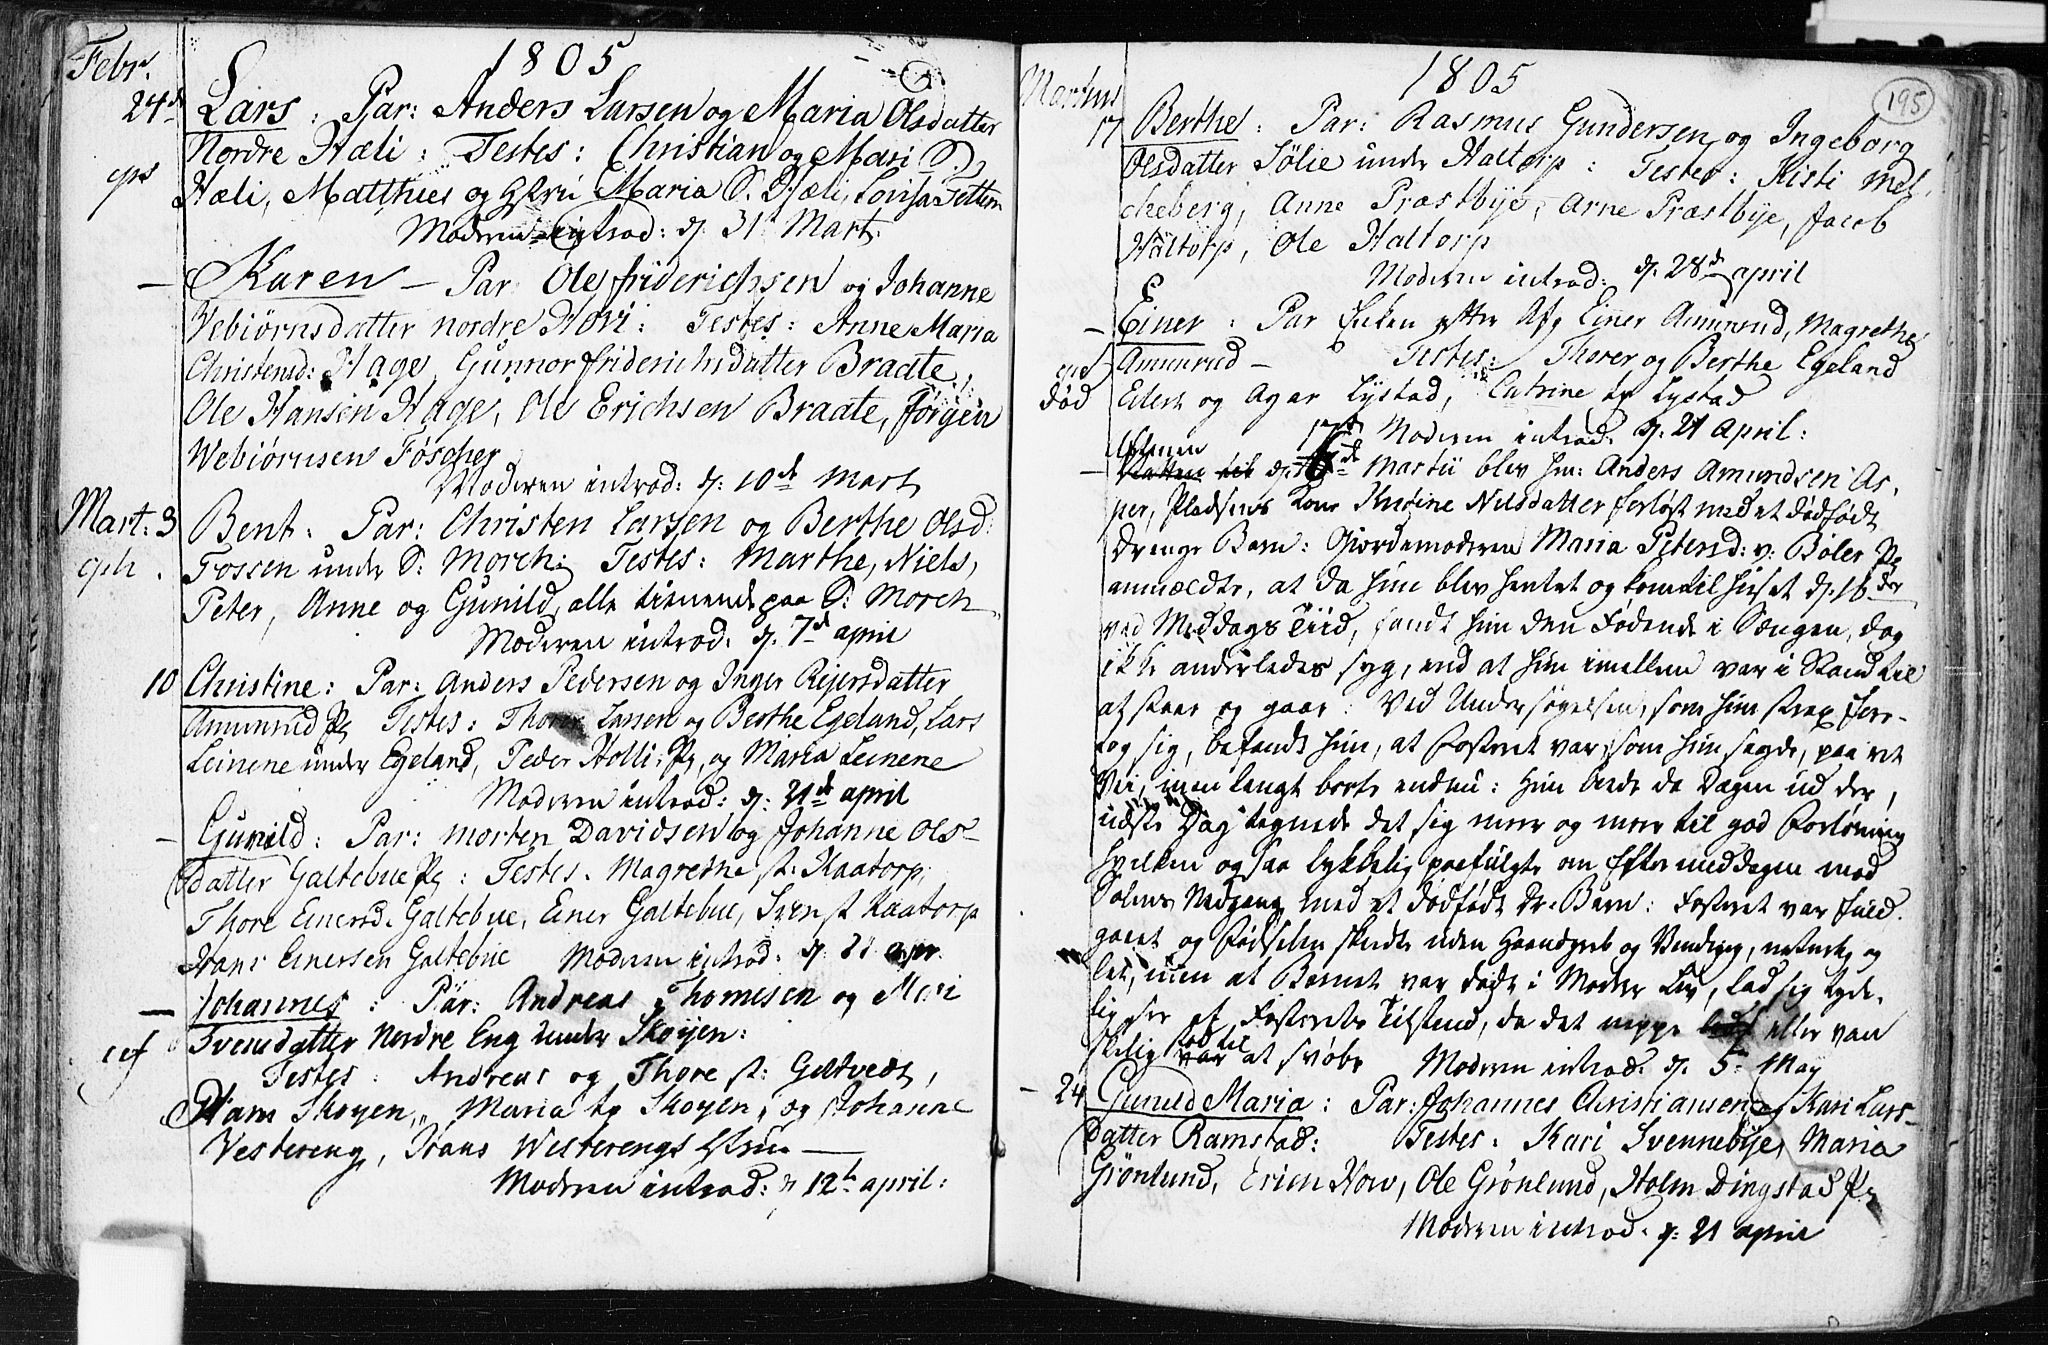 Febr.
1805
24d Lars : Par: Anders Larsen og Maria Olsdatter
Nordre Hæli : Testes: Christian og Mari S.
Hæli, Matthies og Maria S. Hæli, Lovisa
Moderen introd: d. 31t Mart.
— Karen — Par: Ole friderichsen og Johanne
Vebiörnsdatter nordre Hovi : Testes: Anne Maria
Christensd: Hage, Gunnor friderichsdatter Braate,
Ole Hansen Hage, Ole Erichsen Braate, Jørgen
Webiörnsen Föscher
Moderen introd: d: 10de Mart
Mart: 3 Bent : Par: Christen Larsen og Berthe Olsd:
Fossen under S: Morch: Testes: Marthe, Niels,
Peter, Anne og Gunild, alle tienende paa S: Morch
Moderen introd: d. 7d april
10 Christine : Par: Anders Pedersen og Inger Rejersdatter
Amunrud Pg Testes: Thorer Larsen og Berthe Egeland, Lars
Leinene under Egeland, Peder Holli Pg, og Maria Leinene
Moderen introd: d: 21de april
— Gunild : Par: Morten Davidsen og Johanne Ols-
datter Galtebue Pg : Testes. Magrethe st: Kaatorp,
Thore Einersd. Galtebue, Einer Galtebue, Sven st Kaatorp
Hans Einersen Galtebue Moderen introd. d. 21 apr.
— Johannes : Par: Andreas Thomesen og Mari
Svensdatter Nordre Eng under Skoyen:
Testes : Andreas og Thore st: Geltvedt,
Skoyen, Maria Skoyen, og Johanne
Vestereng, Hans Westerengs
Moderen introd: d 12te april:
Martius
1805
195
17 Berthe : Par: Rasmus Gundersen og Ingeborg
Olsdatter Sölie under Haltorp : Testes: Kisti Mel,
cheberg, Anne Præstbye, Arne Præstbye, Jacob
Haltorp, Ole Haltorp
Moderen introd: d. 28d april
— Einer : Par Enken efter Einer Amunrud, Magrethe
Amunrud — Testes: Thorer og Berthe Egeland
død Edert og Agar Lystad, Catrine Lystad
Moderen introd: d: 21 April:
Aftenen
— d. 16de Martii blev hu: Anders Amundsen As,
per, Pladsens Kone Kirstine Nilsdatter forløst med et dødfødt
Drenge Barn: Giordemoderen Maria Petersd: v: Böler Pg
anmeldte, at da hun blev hentet og kom til huset d. 16der
ved Meddags Tiid, fandt hun den Fødende i Sængen, dog
ikke anderledes syg, end at hun imellem var i Stand til
at staae og gaae : Ved Undersögelsen, som hun strax fore-
tog sig, befandt hun, at Fosteret var, som hun sagde, paa ret
Vei, men langt borte endnu : hun biede da Dagen ud der,
næste Dag tegnede det sig meer og meer til god Forløsning
hvilken og saa lykkelig paafulgte om Eftermiddagen med
Solens Nedgang med et dødfødt Dr: Barn : Fosteret var fuld,
gaaet og Fødselen skeedte uden Haandgreb og Vending, naturlig og
let, men at Barnet var dødt i Moders Liv, lod sig tyde-
lig see af Fosterets Tilstand, da det neppe eller van
skelig lod til at svøbe Moderen introd: d. 5te May
— 24 Gunild Maria : Par: Johannes Christiansen og Kari Lars-
datter Ramstad: Testes: Kari Svennebye, Maria
Grönlund, Erich How, Ole Grönlund, Holm Dingstad Pg
Moderen introd. d: 21 april